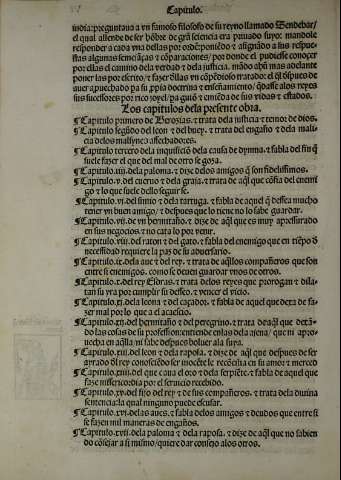 Capitulo.
india: preguntaua a vn famoso filosofo de su reyno llamado Sendebar/
el qual allende de ser hõbre de grã sciencia era priuado suyo: mandole
responder a cada vna dellas por
stas algunas
por ellas el camino dela verdad y dela justicia. mãdo ahũ mas adelante
poner las por escrito/ τ fazer dellas vn cõpẽdioso tratado: el q̃l despues de
auer apuechado pa su ꝓpia doctrina τ enseñamiento/ quedasse alos reyes
sus successores por rico joyel/ pa guia τ emiẽda de sus vidas τ estados.
Los capitulos dela presente obra.
¶ Capitulo primero de Berozias. τ trata dela justicia τ temor de dios.
¶ Capitulo segũdo del leon τ del buey. τ trata del engaño τ dela mali
cia delos
¶ Capitulo tercero dela inquisiciõ dela causa de dymna. τ fabla del fin q̃
suele fazer el que del mal de otro se goza.
¶ Capitulo .iiij. dela paloma. τ dize delos amigos q̃ son fidelissimos.
¶ Capitulo .v. del cueruo τ dela graja. τ trata de aq̃l que cõfia del enemi
go τ lo que suele dello seguir se.
¶ Capitulo .vi. del simio τ dela tartuga. τ fabla de aquel q̃ dessea mucho
tener vn buen amigo/ τ despues que lo tiene no lo sabe guardar.
¶ Capitulo .vij. de vn hermitaño. τ dize de aq̃l que es muy apressurado
en sus negocios. τ no cata lo por venir.
¶ Capitulo .viij. del raton τ del gato. τ fabla del enemigo que en tiẽpo d̃
necessidad requiere la paz de su aduersario.
¶ Capitulo .ix. dela aue τ del rey. τ trata de aq̃llos compañeros que son
entre si enemigos. como se deuen guardar vnos de otros.
¶ Capitulo .x. del rey τ trata delos reyes que prorogan τ dila
tan su yra por cumplir su desseo. τ vencer el vicio.
¶ Capitulo .xi. dela leona τ del caçador. τ fabla de aquel que dexa de fa
zer mal por lo que a el acaescio.
¶ Capitulo .xij. del hermitaño τ del peregrino. τ trata de aq̃l que dexã
do las cosas de su profession: entiende enlas dela ajena/ que ni apro
uecha en aq̃lla ni sabe despues boluer ala suya.
¶ Capitulo .xiij. del leon τ dela raposa. τ dize de aq̃l que despues de ser
ayrado el rey conosciẽdo ser inocẽte le recõcilia en su amor τ merced
¶ Capitulo .xiiij. del que caua el oro τ dela serpiẽte. τ fabla de aquel que
faze misericordia por el seruicio recebido.
¶ Capitulo .xv. del fijo del rey τ de sus compañeros. τ trata dela diuina
sentencia: la qual ninguno puede escusar.
¶ Capitulo .xvi. delas aues. τ fabla delos amigos τ deudos que entre si
se fazen mil maneras de engaños.
¶ Capitulo .xvij. dela paloma τ dela raposa. τ dize de aq̃l que no sabien
do cõsejar a si mismo/ quiere dar consejo alos otros.